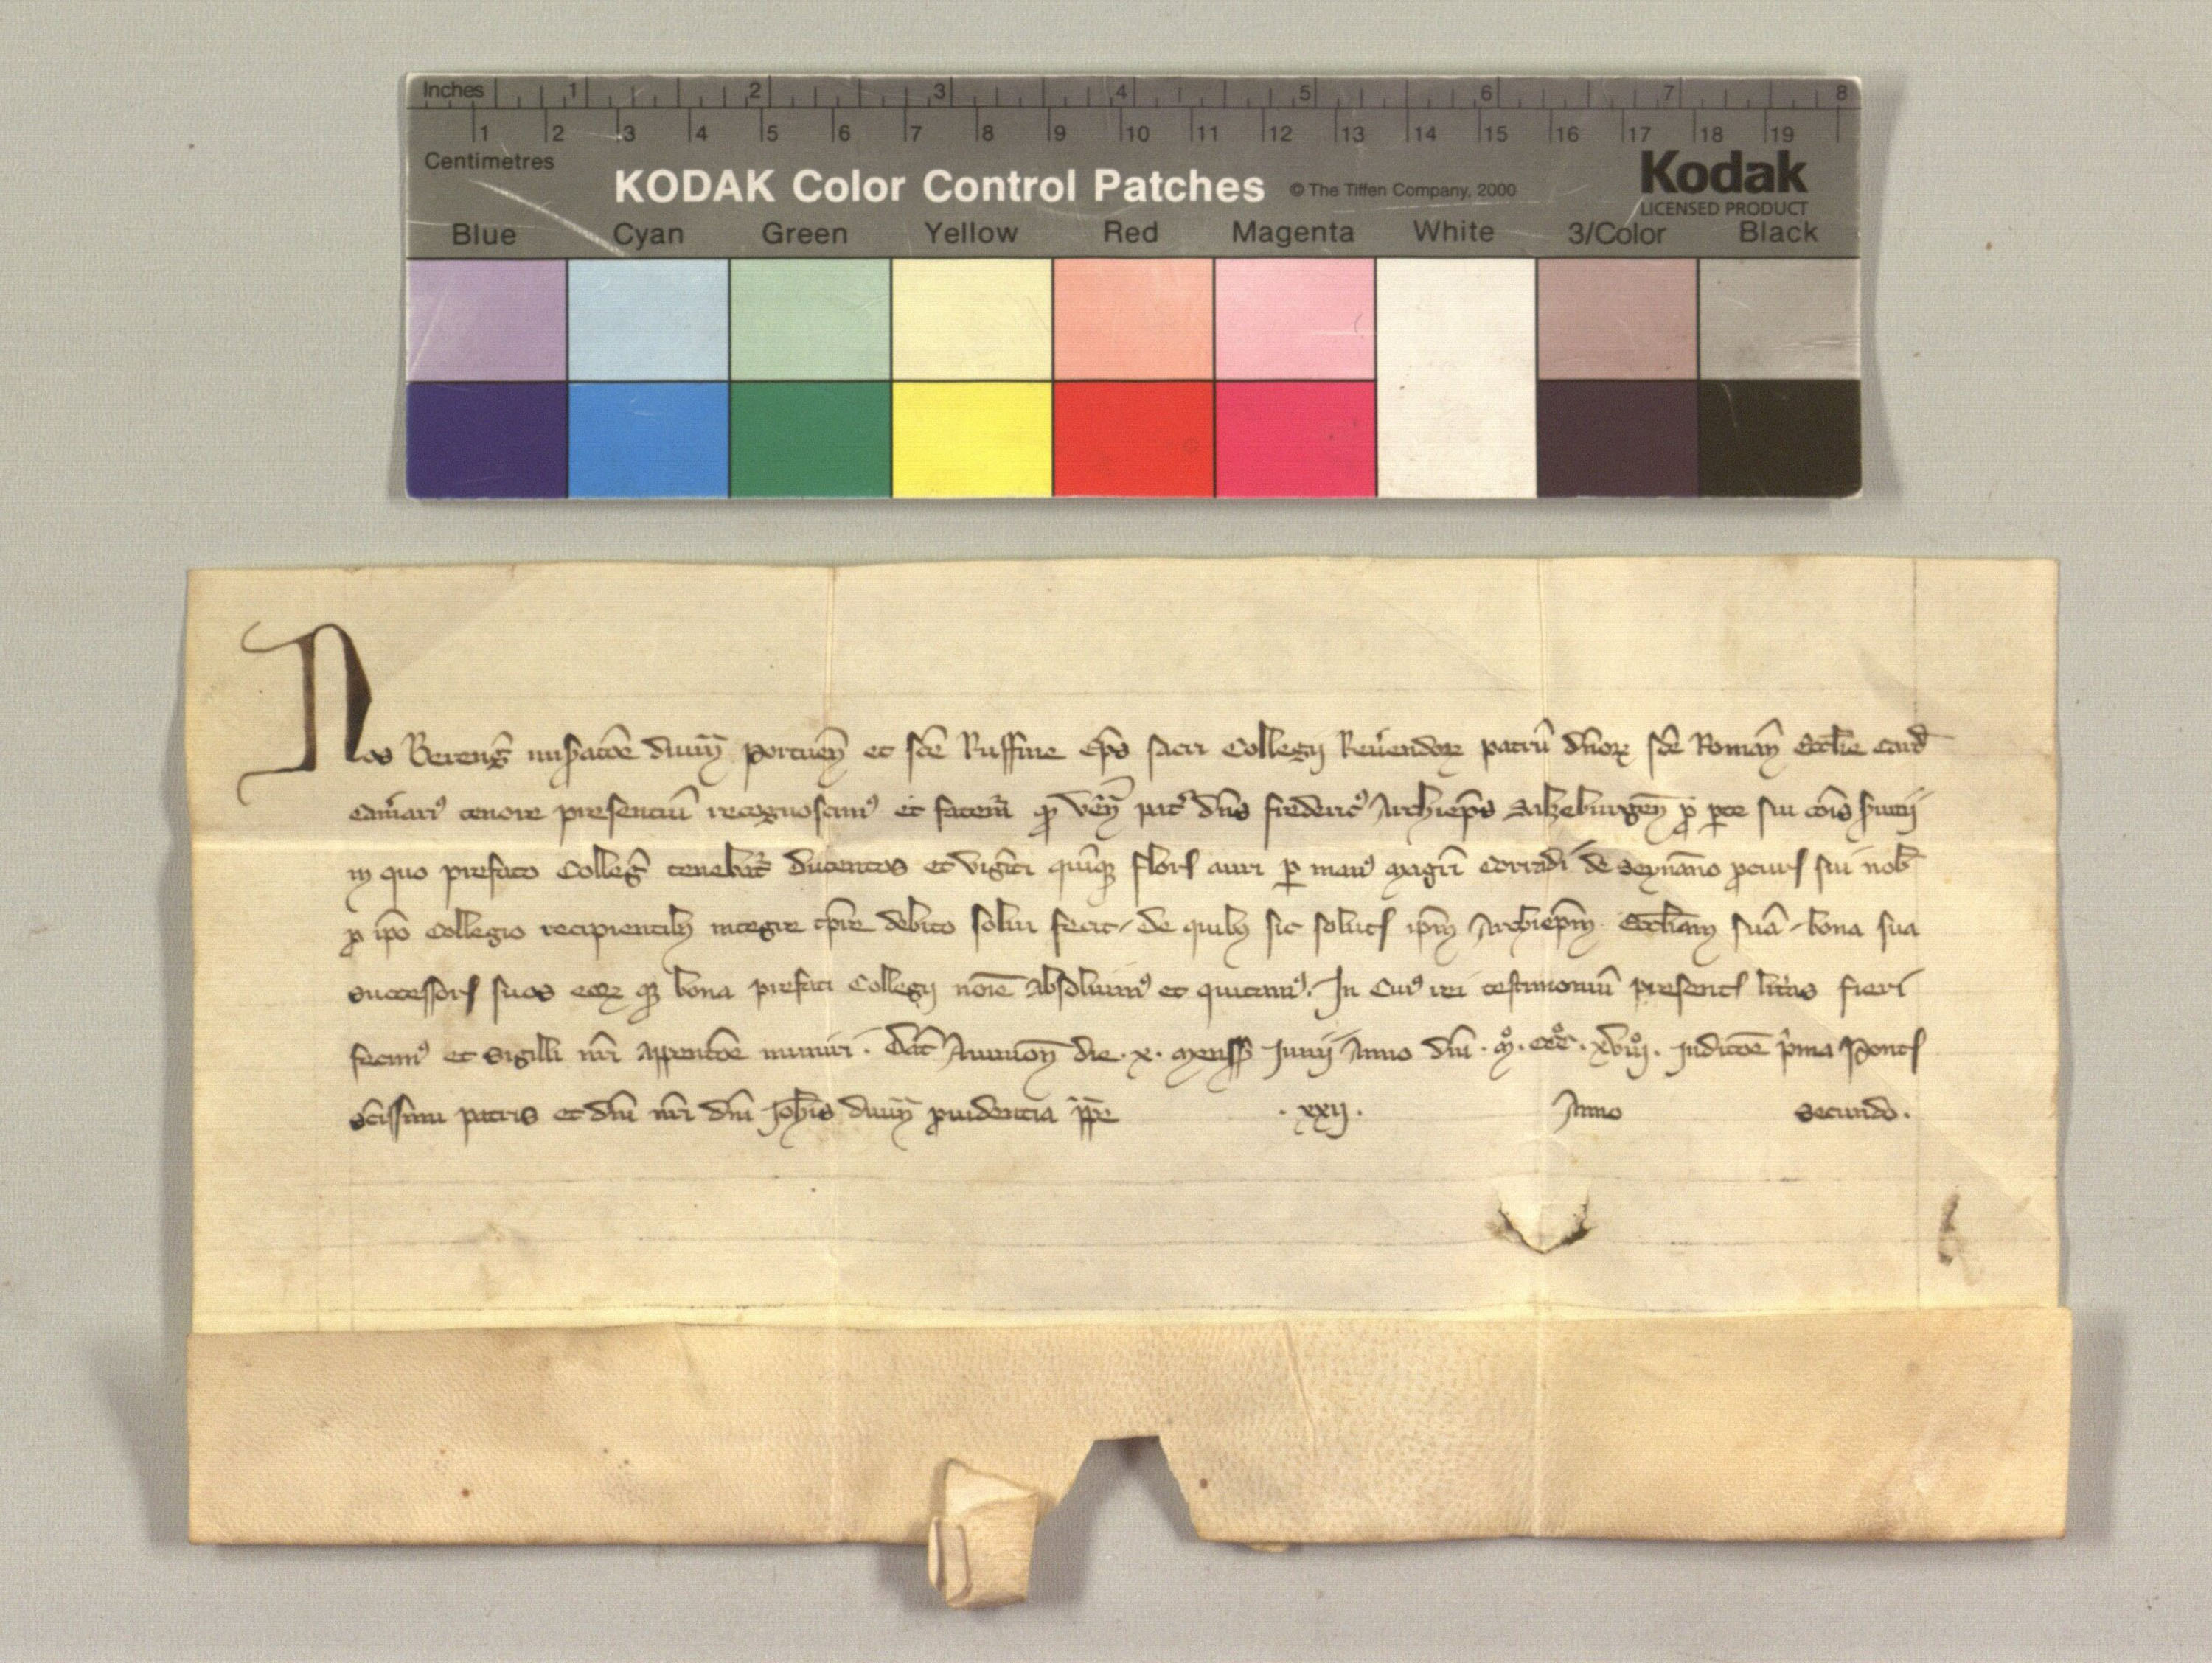 Inches 1 2 3 4 5 6 7 8
1 2 3 4 5 6 7 8 9 10 11 12 13 14 15 16 17 18 19
Centimetres
KODAK Color Control Patches © The Tiffen Company, 2000 Kodak
LICENSED PRODUCT
Blue Cyan Green Yellow Red Magenta White 3/Color Black
Nos Bereng̃ mis̱atōe diuin̄ Portuen̄ et sc̄e Ruffine ep̄s sacri Collegij Reu̓endoꝝ patrū dn̄oꝝ sc̄e Roman̄ Ecc̄lie Card̄
Camari⁹ tenore presentiū recognoscim⁹ et fatem̄ ꝙ ven̄ pat̓ dn̄s frederic⁹ Archiep̄s Salzeburgen̄ ꝓ ꝑte sui cōis s̓uitij
in quo prefato Colleg̃ tenebat̓ ducentos et viginti quinqꝫ flor̄ auri ꝑ man⁹ magr̄i Corradi de ꝓcur̄ sui nob̄
ꝓ ip̄o Collegio recipientibꝫ integre tp̄re debito solui fecit / de quibꝫ sic solut̄ ip̄m Archiep̄m Ecc̄liam suā / bona sua
successor̄ suos eoꝝqꝫ bona prefati Collegij noīe absoluim⁹ et quitam⁹. In cui⁹ rei testimoniū present̄ litr̄as fieri
fecim⁹ et sigilli nr̄i appensōe muniri. Dat̄ Auinion̄ die .x. mens̄ Junij Anno dn̄i .mͦ.cccͦ.xviijͦ. indictōe p̓ma Pont̄
sc̄issimi patris et dn̄i nr̄i dn̄i Joh̄is diuin̄ ꝓuidentia pp̄e .xxij. Anno secundo.